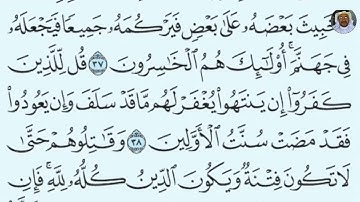 خَبِيثَ بَعْضَهُۥ عَلَىٰ بَعْضٍ فَيَرْكُمَهُۥ جَمِيعًا فَيَجْعَلَهُۥ
فِى جَهَنَّمَ ۚ أُو۟لَـٰٓئِكَ هُمُ ٱلْخَـٰسِرُونَ ٣٧ قُل لِّلَّذِينَ
كَفَرُوٓا۟ إِن يَنتَهُوا۟ يُغْفَرْ لَهُم مَّا قَدْ سَلَفَ وَإِن يَعُودُوا۟
فَقَدْ مَضَتْ سُنَّتُ ٱلْأَوَّلِينَ ٣٨ وَقَـٰتِلُوهُمْ حَتَّىٰ
لَا تَكُونَ فِتْنَةٌ وَيَكُونَ ٱلدِّينُ كُلُّهُۥ لِلَّهِ ۚ فَإِنِ